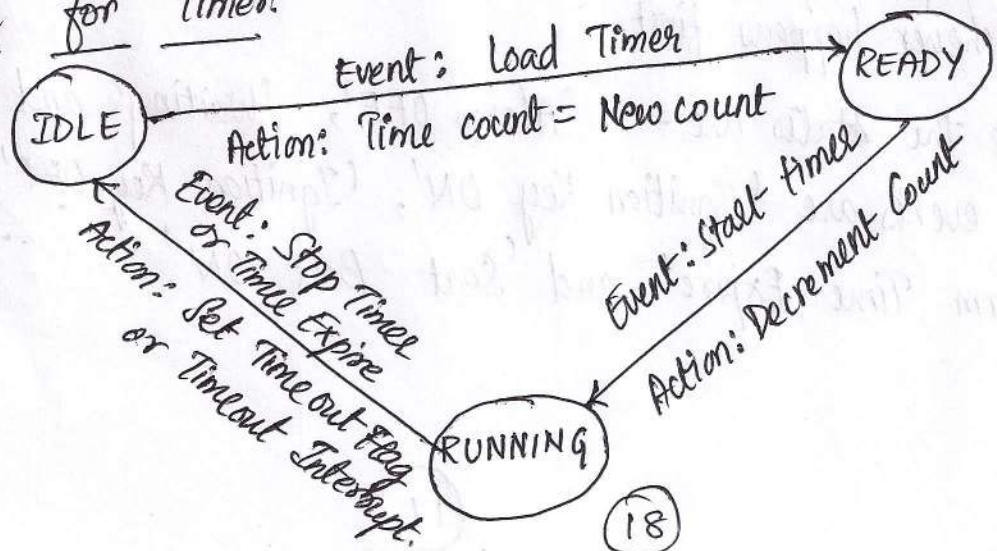 for Timer.
IDLE
Event: Load Timer
Action: Time count = New count
READY
Event: Start timer
Action: Decrement Count
RUNNING
Event: Stop Timer
or Time Expire
Action: Set Timeout Flag
or Timeout Interrupt.
18